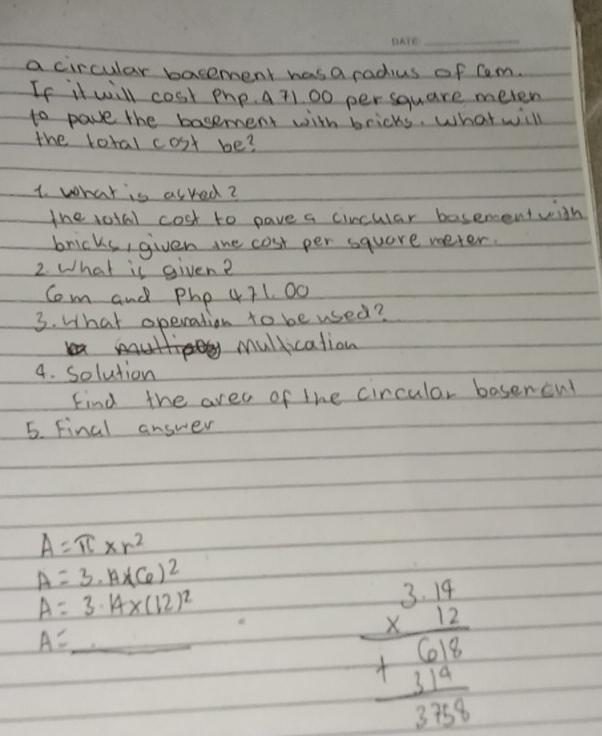 DATE
a circular basement has a radius of 6m.
If it will cost Php. 471.00 per square meten
to pave the basement with bricks. What will
the total cost be?
1. What is asked?
the total cost to pave a circular basement with
bricks, given the cost per square meter.
2. What is given?
6m and Php 471.00
3. What operation to be used?
Multication
4. Solution
Find the area of the circular basement
5. Final answer
A = π x r²
A = 3.14x(6)²
A = 3.14x(12)²
A = .
3.14
x 12
618
+ 314
3758